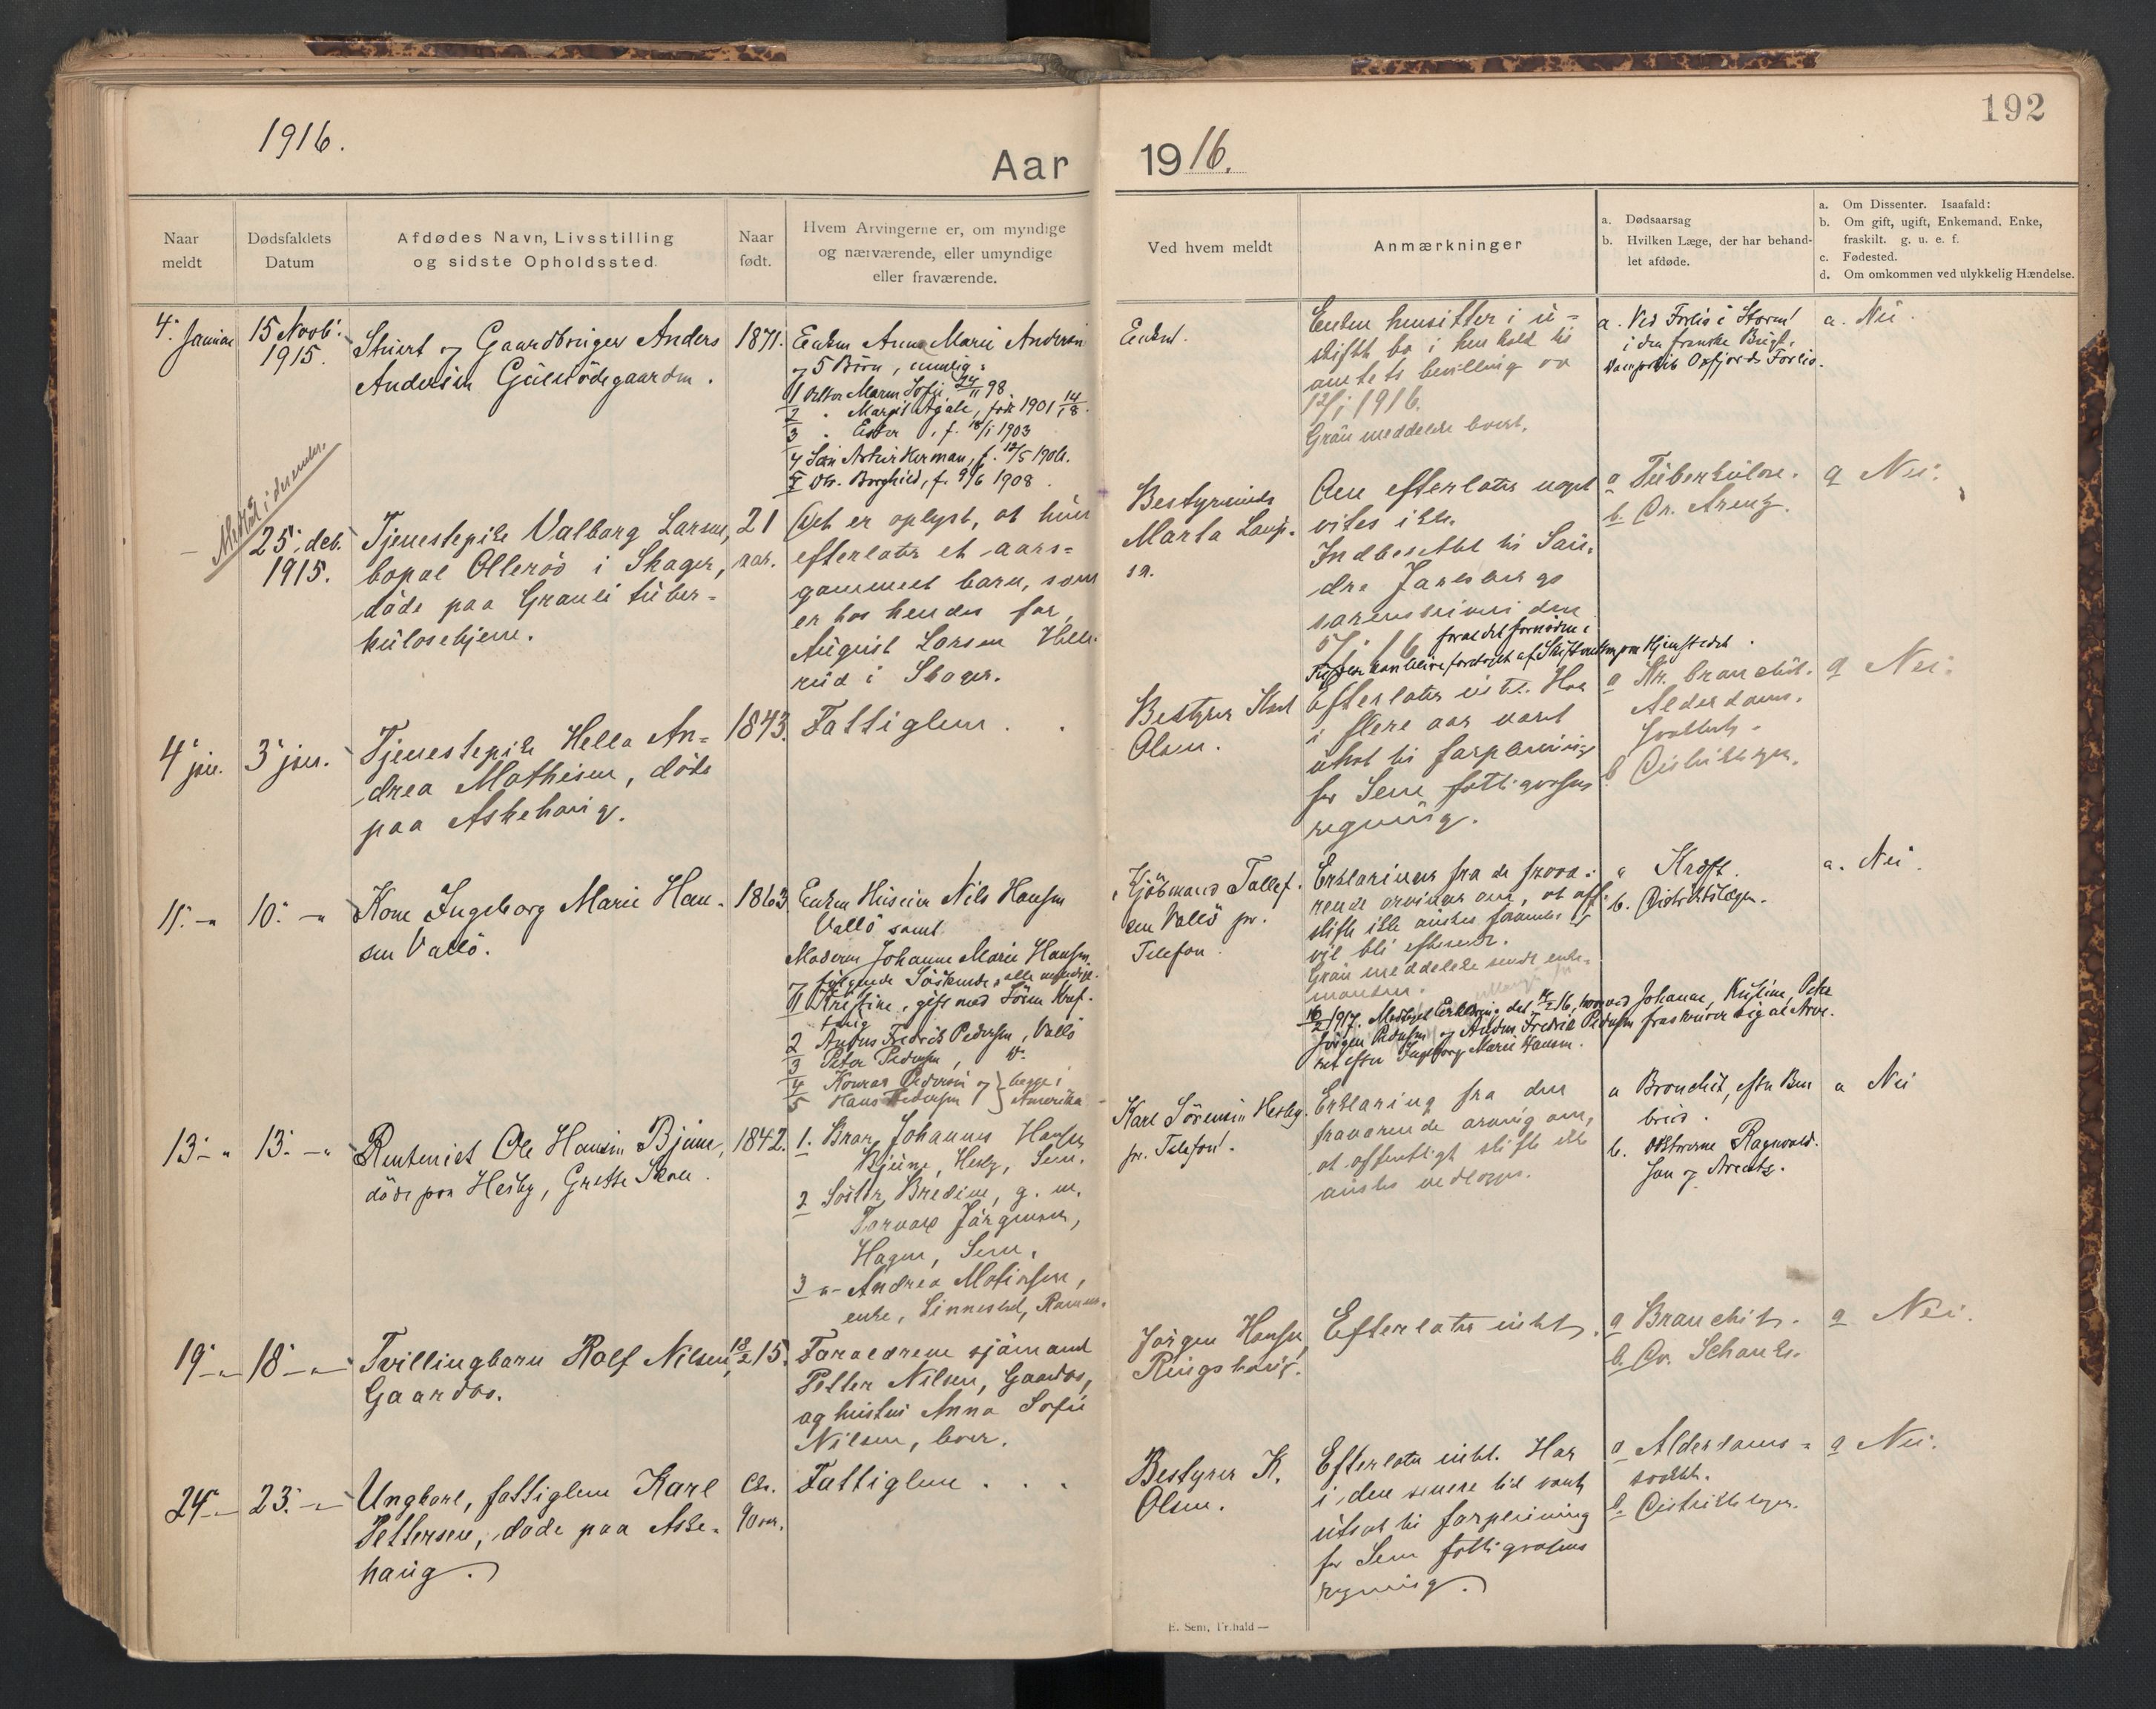 192
1916.
Aar 1916.
Naar meldt
Dødsfaldets Datum
Afdødes Navn, Livsstilling og sidste Opholdssted.
Naar født.
Hvem Arvingerne er, om myndige og nærværende, eller umyndige eller fraværende.
Ved hvem meldt
Anmærkninger
a. Dødsaarsag
b. Hvilken Læge, der har behandlet afdøde.
a. Om Dissenter. Isaafald:
b. Om gift, ugift, Enkemand, Enke, fraskilt. g. u. e. f.
c. Fødested.
d. Om omkommen ved ulykkelig Hændelse.
4. Januar
15 Novb.
1915.
Stuert og Gaardbruger Anders
Andersen
1871.
Enken Anna Marie Andersen
og 5 Börn, nemlig:
1 Datter Maren Sofie, 24/11 98.
2 " Margit Agate, född 1901 14/18.
3 " Ester, f. 18/1 1903
4 Sön Artur Herman, f. 12/5 1906.
5 Dtr. Borghild, f. 9/6 1908.
Enken.
Enken hensitter i u-
skiftet bo i henhold til
amtets bevilling av
12/1 1916.
Grön meddelelse
a. Ved Forlis i Storm
i den franske Bugt.
Forlis.
a. Nei.
25. deb.
1915.
Tjenestepike Valborg Larsen,
bopæl Olleröd i Skoger,
döde paa Grauli tuber-
kulosehjem.
21
aar.
Det er oplyst, at hun
efterlater et aars-
gammelt barn, som
er hos hendes far,
August Larsen
rud i Skoger.
Bestyrerinde
Marta Laur-
sa.
Om efterlater noget
vites ikke.
Indberettet til Sön-
dre Jarlsbergs
sorenskriveri den
5/1 16
a Tuberkulose.
b. Dr. Arentz.
a Nei.
4. jan.
3. jan.
Tjenestepike Hella An-
drea Mathisen, döde
paa Askehaug.
1843.
Fattiglem.
Bestyrer Karl
Olsen.
Efterlater intet. Har
i flere aar været
utsat til forpleining
for Sem fattigvæsens
regning.
a Kr. bronchit.
Alderdoms-
svakhet.
b Distriktslægen.
a Nei.
11. - "
10. - "
Kone Ingeborg Marie Han-
sen Vallö.
1863
Enkem. Nils Hansen
Vallö samt
Moderen Johanne Marie Hansen
og fölgende Söskende, alle myndige.
1 Kristine, gift med Sören
2 Anders Fredrik Pedersen, Vallö
3 Peter Pedersen,
4 Konrad Pedersen og } begge i
5 Hans Pedersen } Amerika
Kjöbmand Tollef-
sen Vallö pr.
Telefon.
Erklæringer fra de fravæ-
rende arvinger om, at off.
skifte ikke önskes fremmet
vil bli eftersendt.
Grön meddelelse sendt enke-
manden.
16/2 1917. Mottaget Erklæring
Jörgen Pedersen og Anders Fredrik Pedersen fraskriver sig al Arve-
ret efter Ingeborg Marie Hansen.
a Kræft.
b. Distriktslægen.
a. Nei.
13. - "
13. - "
Rentenist Ole Hansen Bjune,
döde paa Hesby, Grette Skole.
1842.
1. Bror Johannes Hansen
Bjune, Hesby, Sem.
2 Söster Bredine, g. m.
Torvald Jörgensen,
Hagen, Sem.
3 "- Andrea Matisen,
enke, Linnestad, Ramnes.
Karl Sörensen Hesby
pr. Telefon.
Erklæring fra den
fraværende arving om,
at offentligt skifte ikke
önskes vedlægges.
a Bronchit, efter Ben
brud.
b. Doktorerne Ragnvald-
sen og Arentz.
a Nei
19. - "
18. - "
Tvillingbarn Rolf Nilsen,
Gaardbo.
18/2 15.
Forældrene sjömand
Petter Nilsen, Gaardbo,
og hustru Anna Sofie
Nilsen, lever.
Jörgen Hansen,
Ringshaug.
Efterlater intet.
a Bronchit.
b. Dr. Schanke.
a Nei.
24. - "
23. - "
Ungkarl, fattiglem Karl
Pettersen, döde paa Aske-
haug.
Ca.
90 aar.
Fattiglem
Bestyrer K.
Olsen.
Efterlater intet. Har
i den senere tid været
utsat til forpleining
for Sem fattigvæsens
regning.
a Alderdoms-
svakhet.
b. Distriktslægen.
a Nei.
E. Sem, Fr.hald —